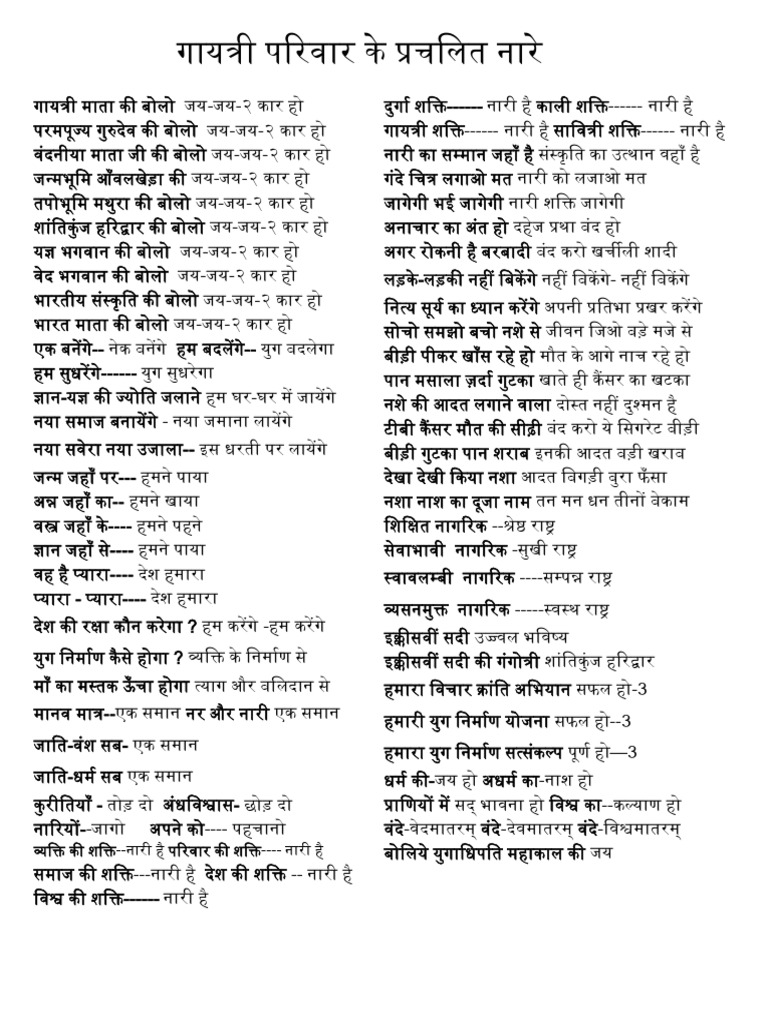 गायत्री परिवार के प्रचलित नारे
गायत्री माता की बोलो जय-जय-२ कार हो
परमपूज्य गुरुदेव की बोलो जय-जय-२ कार हो
वंदनीया माता जी की बोलो जय-जय-२ कार हो
जन्मभूमि आँवलखेड़ा की जय-जय-२ कार हो
तपोभूमि मथुरा की बोलो जय-जय-२ कार हो
शांतिकुंज हरिद्वार की बोलो जय-जय-२ कार हो
यज्ञ भगवान की बोलो जय-जय-२ कार हो
वेद भगवान की बोलो जय-जय-२ कार हो
भारतीय संस्कृति की बोलो जय-जय-२ कार हो
भारत माता की बोलो जय-जय-२ कार हो
एक बनेंगे-- नेक बनेंगे हम बदलेंगे-- युग बदलेगा
हम सुधरेंगे------ युग सुधरेगा
ज्ञान-यज्ञ की ज्योति जलाने हम घर-घर में जायेंगे
नया समाज बनायेंगे - नया जमाना लायेंगे
नया सवेरा नया उजाला-- इस धरती पर लायेंगे
जन्म जहाँ पर--- हमने पाया
अन्न जहाँ का-- हमने खाया
वस्त्र जहाँ के---- हमने पहने
ज्ञान जहाँ से---- हमने पाया
वह है प्यारा---- देश हमारा
प्यारा - प्यारा---- देश हमारा
देश की रक्षा कौन करेगा ? हम करेंगे -हम करेंगे
युग निर्माण कैसे होगा ? व्यक्ति के निर्माण से
माँ का मस्तक ऊँचा होगा त्याग और बलिदान से
मानव मात्र--एक समान नर और नारी एक समान
जाति-वंश सब- एक समान
जाति-धर्म सब एक समान
कुरीतियाँ - तोड़ दो अंधविश्वास- छोड़ दो
नारियों--जागो अपने को---- पहचानो
व्यक्ति की शक्ति--नारी है परिवार की शक्ति---- नारी है
समाज की शक्ति---नारी है देश की शक्ति -- नारी है
विश्व की शक्ति------ नारी है
दुर्गा शक्ति------ नारी है काली शक्ति------ नारी है
गायत्री शक्ति------ नारी है सावित्री शक्ति------ नारी है
नारी का सम्मान जहाँ है संस्कृति का उत्थान वहाँ है
गंदे चित्र लगाओ मत नारी को लजाओ मत
जागेगी भई जागेगी नारी शक्ति जागेगी
अनाचार का अंत हो दहेज प्रथा बंद हो
अगर रोकनी है बरबादी बंद करो खर्चीली शादी
लड़के-लड़की नहीं बिकेंगे नहीं बिकेंगे- नहीं बिकेंगे
नित्य सूर्य का ध्यान करेंगे अपनी प्रतिभा प्रखर करेंगे
सोचो समझो बचो नशे से जीवन जिओ बड़े मजे से
बीड़ी पीकर खाँस रहे हो मौत के आगे नाच रहे हो
पान मसाला ज़र्दा गुटका खाते ही कैंसर का खटका
नशे की आदत लगाने वाला दोस्त नहीं दुश्मन है
टीबी कैंसर मौत की सीढ़ी बंद करो ये सिगरेट बीड़ी
बीड़ी गुटका पान शराब इनकी आदत बड़ी खराब
देखा देखी किया नशा आदत बिगड़ी बुरा फँसा
नशा नाश का दूजा नाम तन मन धन तीनों बेकाम
शिक्षित नागरिक --श्रेष्ठ राष्ट्र
सेवाभावी नागरिक -सुखी राष्ट्र
स्वावलम्बी नागरिक ----सम्पन्न राष्ट्र
व्यसनमुक्त नागरिक -----स्वस्थ राष्ट्र
इक्कीसवीं सदी उज्ज्वल भविष्य
इक्कीसवीं सदी की गंगोत्री शांतिकुंज हरिद्वार
हमारा विचार क्रांति अभियान सफल हो-3
हमारी युग निर्माण योजना सफल हो--3
हमारा युग निर्माण सत्संकल्प पूर्ण हो—3
धर्म की-जय हो अधर्म का-नाश हो
प्राणियों में सद् भावना हो विश्व का--कल्याण हो
वंदे-वेदमातरम् वंदे-देवमातरम् वंदे-विश्वमातरम्
बोलिये युगाधिपति महाकाल की जय